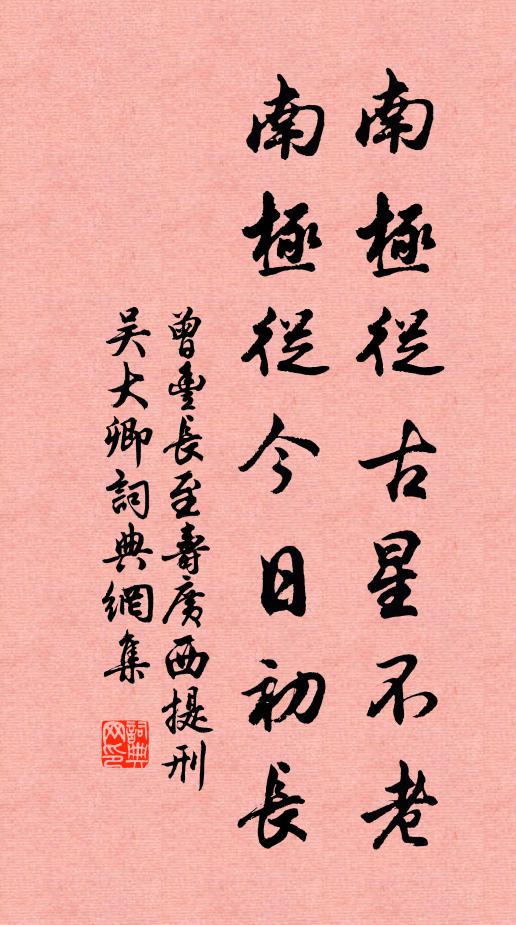 南極從古星不老
南極從今日初長
曾豐長至壽廣西提刑
吴大卿詞典網集
詞典
网印